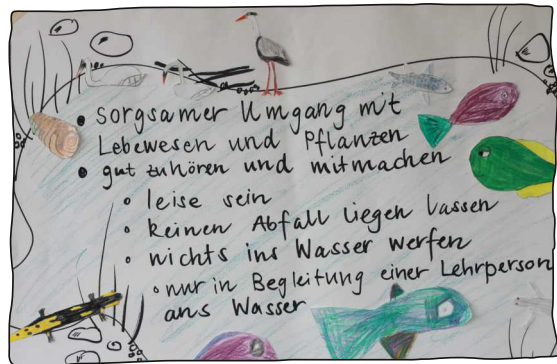 • sorgsamer Umgang mit
Lebewesen und Pflanzen
• gut zuhören und mitmachen
• leise sein
• keinen Abfall liegen lassen
• nichts ins Wasser werfen
• nur in Begleitung einer Lehrperson
ans Wasser